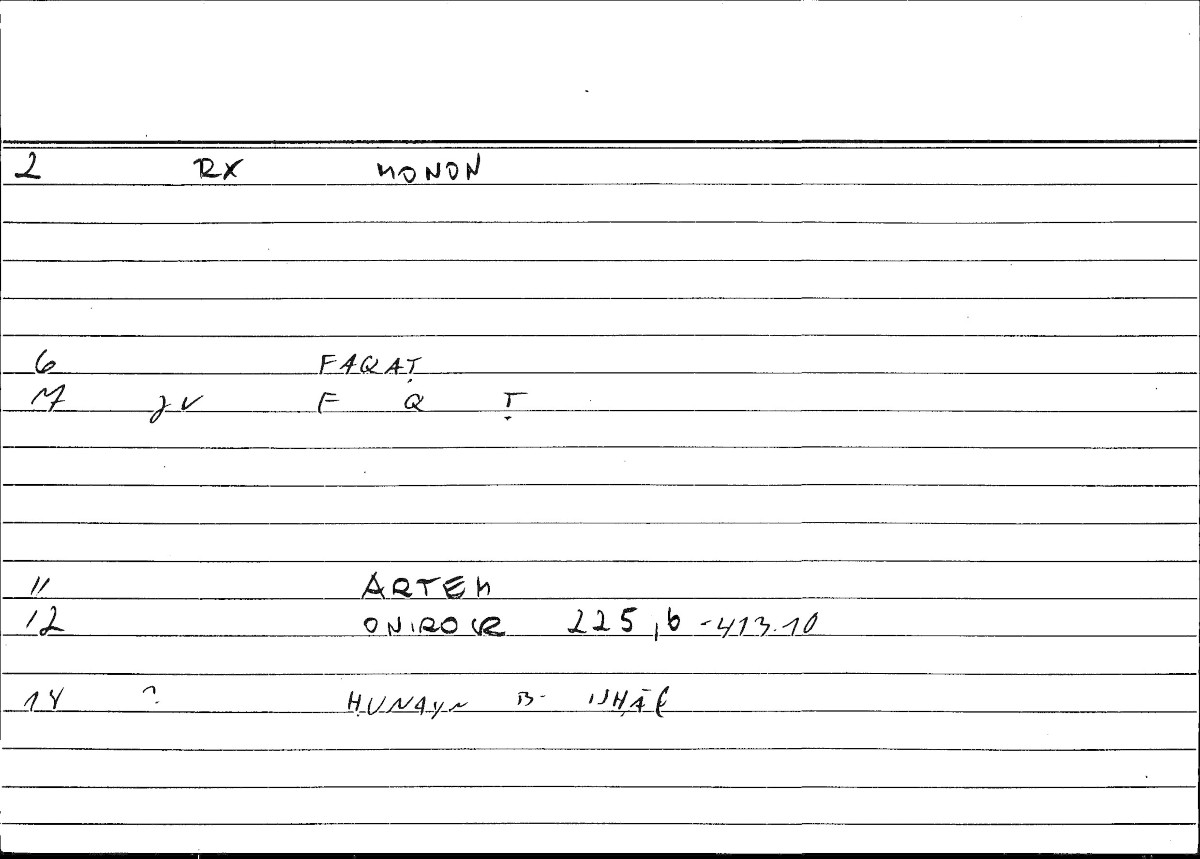 2 RX MONON
6 FAQAṬ
7 JV F Q Ṭ
11 ARTEM
12 ONIROCR 225,6 - 413.10
14 ? ḤUNAYN B- ISḤĀQ